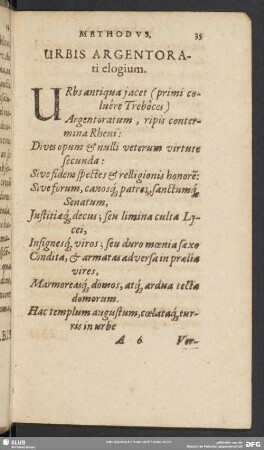 METHODVS. 35
URBIS ARGENTORA-
ti elogium.
URbs antiqua jacet (primi co-
luêre Trebôces)
Argentoratum, ripis conter-
mina Rheni:
Dives opum & nulli veterum virtute
secunda:
Sive fidem spectes & relligionis honorē:
Sive forum, canosq́; patres, sanctumq́;
Senatum,
Justitiæq́; decus; seu limina culta Ly-
cei,
Insignesq́; viros; seu duro mœnia saxo
Condita, & armatas adversa in prælia
vires,
Marmoreasq́; domos, atq́; ardua tecta
domorum.
Hac templum augustum, cælataq́; tur-
ris in urbe
A 6 Ver-
SLUB
DFG